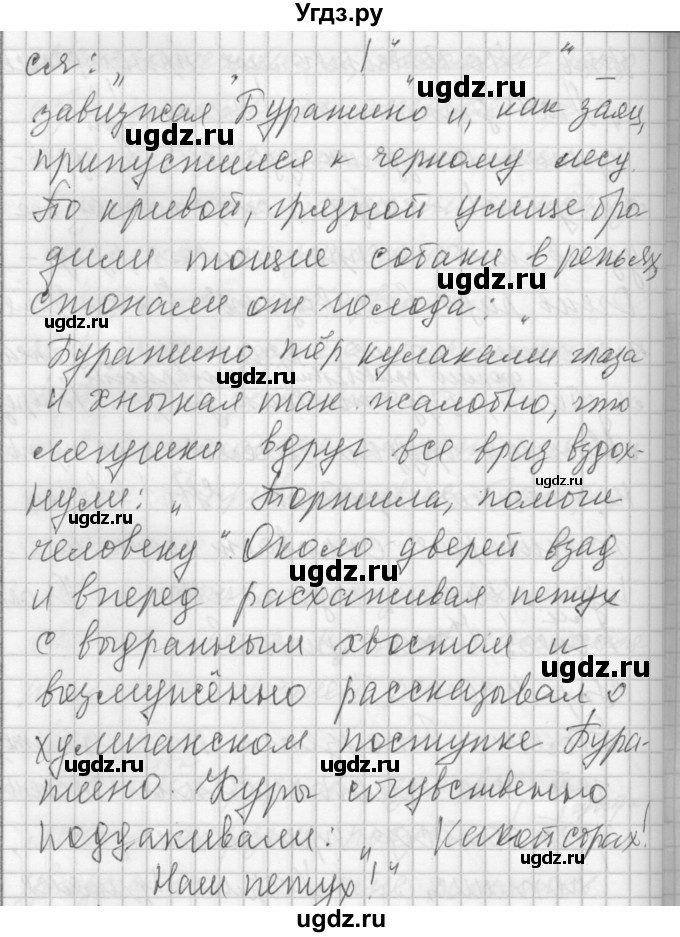 Угдз.ру
ся: „ , !“ “
завизжал Буратино и, как заяц,
припустился к черному лесу.
По кривой, грязной улице бро
дили тощие собаки в репьях,
стонали от голода: „
Буратино тёр кулаками глаза
и хныкал так жалобно, что
лягушки вдруг все враз вздох-
нули: „ Тортила, помоги
человеку“. Около дверей взад
и вперед расхаживал петух
с выдранным хвостом и
возмущённо рассказывал о
хулиганском поступке Бура-
тино. Куры сочувственно
поддакивали: „ Какой страх!
Наш петух!“
ugdz.ru
ugdz.ru
ugdz.ru
ugdz.ru
ugdz.ru
ugdz.ru
ugdz.ru
ugdz.ru
ugdz.ru
ugdz.ru
ugdz.ru
ugdz.ru
ugdz.ru
ugdz.ru